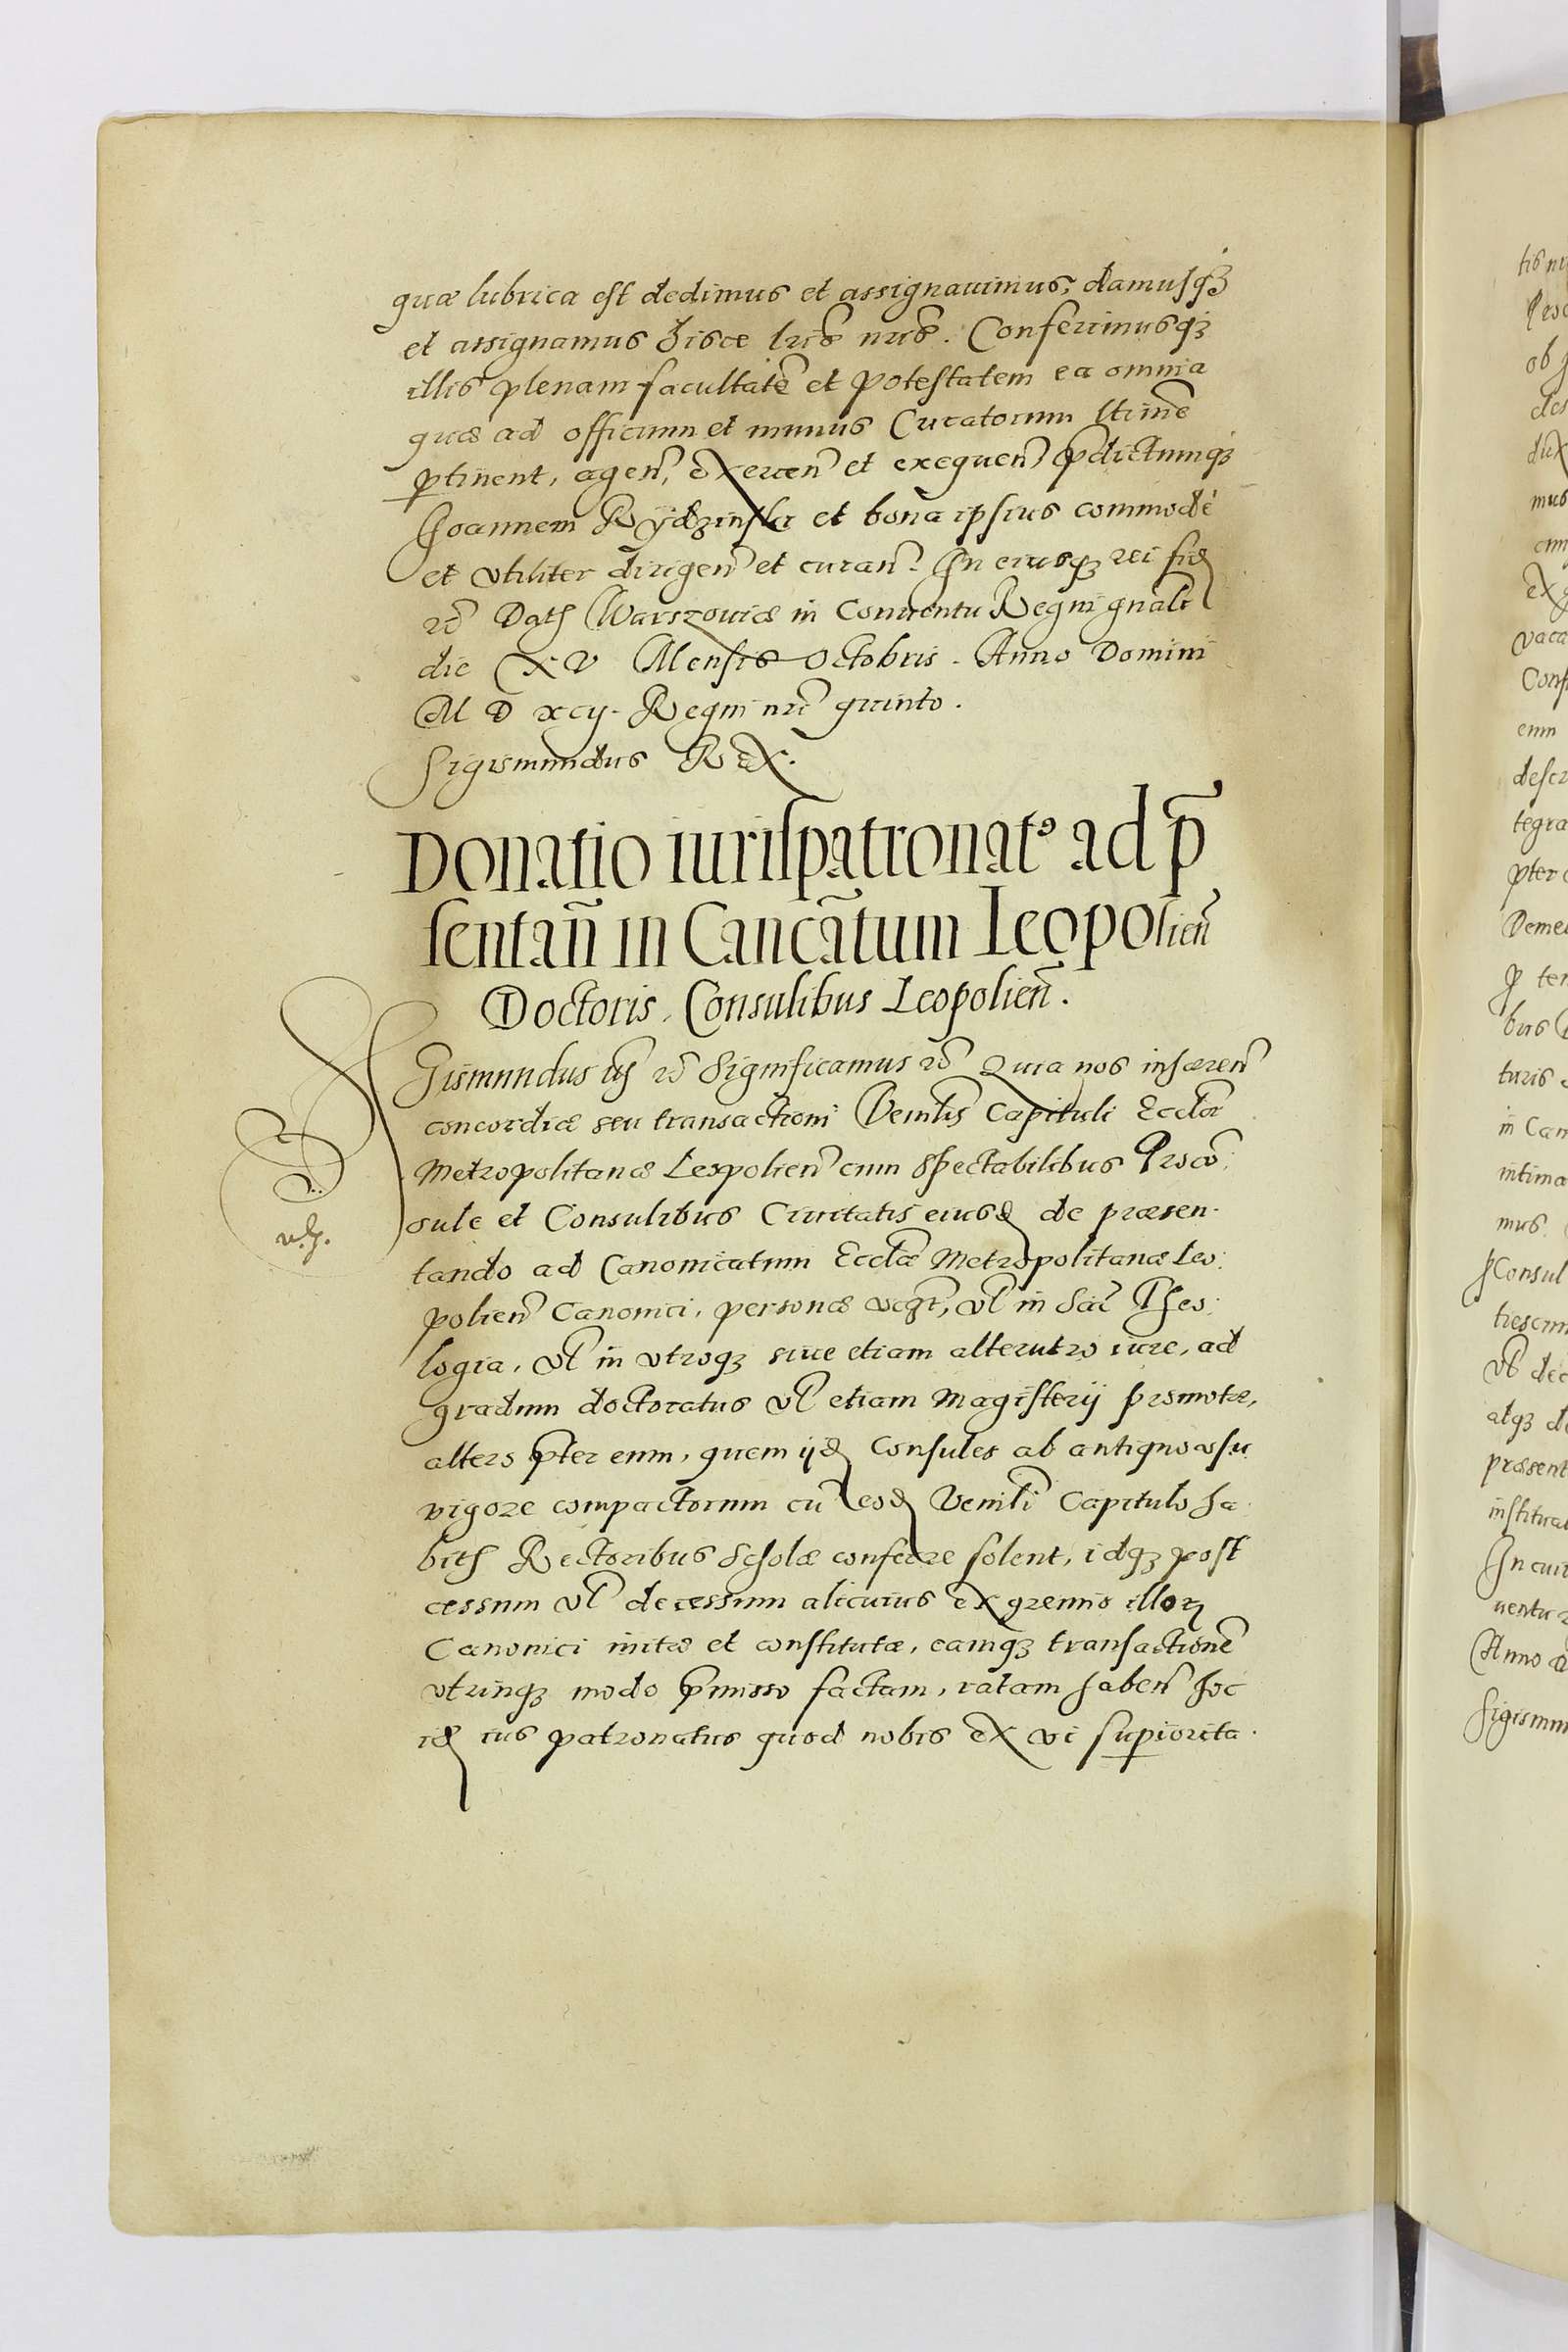 quæ lubrica est dedimus et assignauimus, damusq₃
et assignamus hisce lr̃is nr̃is. Conferimusq₃
illis plenam facultatẽ et potestatem ea omnia
quæ ad officium et munus Curatorum l̃timẽ
ꝑtinent, agen̄, exercen̄ et exequen̄, p̃dictumq₃
Joannem Rÿdzinski et bona ipsius commodè
et vtiliter dirigen̄ et curan̄. In cuiusq₃ rei fid
rc̃ Dat Warszouiæ in Conuentu Regni gn̄ali
die XV Mensis Octobris. Anno Domini
M D xcij. Regni nr̃i quinto.
Sigismundus Rex.
Donatio iurispatronatꝰ ad p̃
sentan̄ in Can̄catum Leopolien̄
Doctoris, Consulibus Leopolien̄.
Sigismundus rc̃ Significamus rc̃ Quia nos inhæren̄
concordiæ seu transactioni Ven̄lis Capituli Eccl̃æ
Metropolitanæ Leopolien̄ cum Spectabilibus Procõ:
sule et Consulibus Ciuitatis eiusd de præsen-
tando ad Canonicatum Eccl̃æ Metropolitanæ Leo:
polien̄ Canonici, personæ vl̃ in Sac̃ Theo:
logia, vl̃ in vtroq₃ siue etiam alterutro iure, ad
gradum doctoratus vl̃ etiam Magisterij promotæ,
altero p̃ter eum, quem ijd Consules ab antiquo vsu
vigore compactorum cũ eod Ven̄li Capitulo ha-
bit Rectoribus Scholæ conferre solent, idq₃ post
cessum vl̃ decessum alicuius ex gremio illoꝝ
Canonici initæ et constitutæ, eamq₃ transactionẽ
vtrinq₃ modo p̃misso factam, ratam haben̄ hoc
id ius patronatus quod nobis ex vi suꝑiorita-